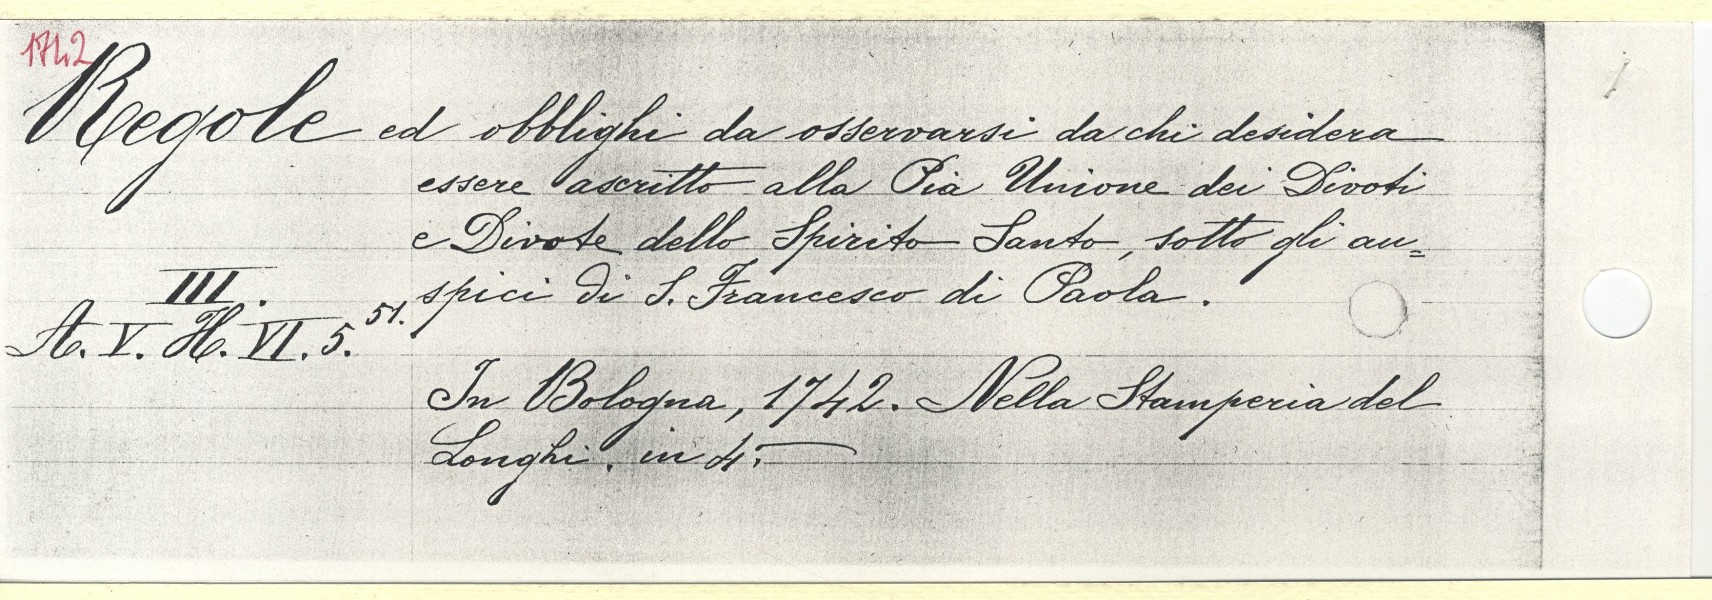 1742
Regole ed obblighi da osservarsi da chi desidera
essere ascritto alla Pia Unione dei Divoti
e Divote dello Spirito Santo, sotto gli au=
spici di S. Francesco di Paola.
III.
A. V. H. VI. 5. 51.
In Bologna, 1742. Nella Stamperia del
Longhi. in 4.